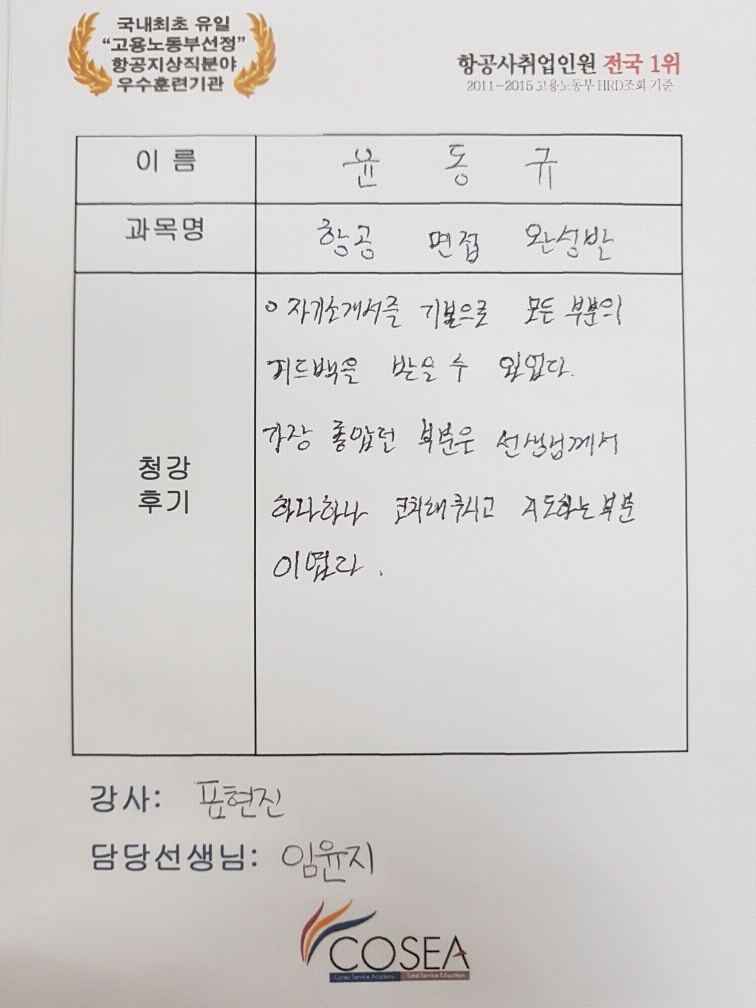 국내최초 유일
“고용노동부선정”
항공지상직분야
우수훈련기관
항공사취업인원 전국 1위
2011-2015 고용노동부 HRD조회 기준
이 름
윤 동 규
과목명
항공 면접 완성반
청강
후기
o 자기소개서를 기본으로 모든 부분의
피드백을 받을 수 있었다.
가장 좋았던 부분은 선생님께서
하나하나 코치해주시고 지도하는 부분
이였다.
강사: 표현진
담당선생님: 임윤지
COSEA
Corea Service Academy Total Service Education